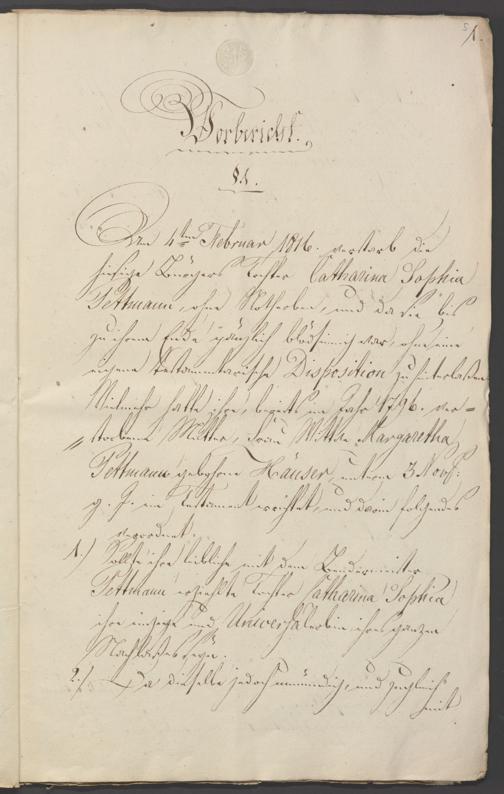 1.
Vorbericht.
§ 1.
Den 4ten Februar 1816. verstarb die
hiesige Bürgers Tochter Catharina Sophia
Pettmann, ohne Notherben, und da sie bis
zu ihrem Ende gänzlich blödsinnig war, ohne eine
eigene testamentarische Disposition zu hinterlassen
Vielmehr hatte ihre, bereits im Jahr 1796. ver-
storbene Mutter, Frau Wittwe Margaretha
Pettmann gebohrne Häuser, unterm 3 Novbr:
g. J. ein Testament errichtet, und darin folgendes
verordnet.
1.) Sollte ihre leibliche mit dem
Pettmann erzielte Tochter Catharina Sophia
ihre einzige und Universalerbin ihres ganzen
Nachlasses seyn.
2.) Da dieselbe jedoch unmündig, und zugleich
mit